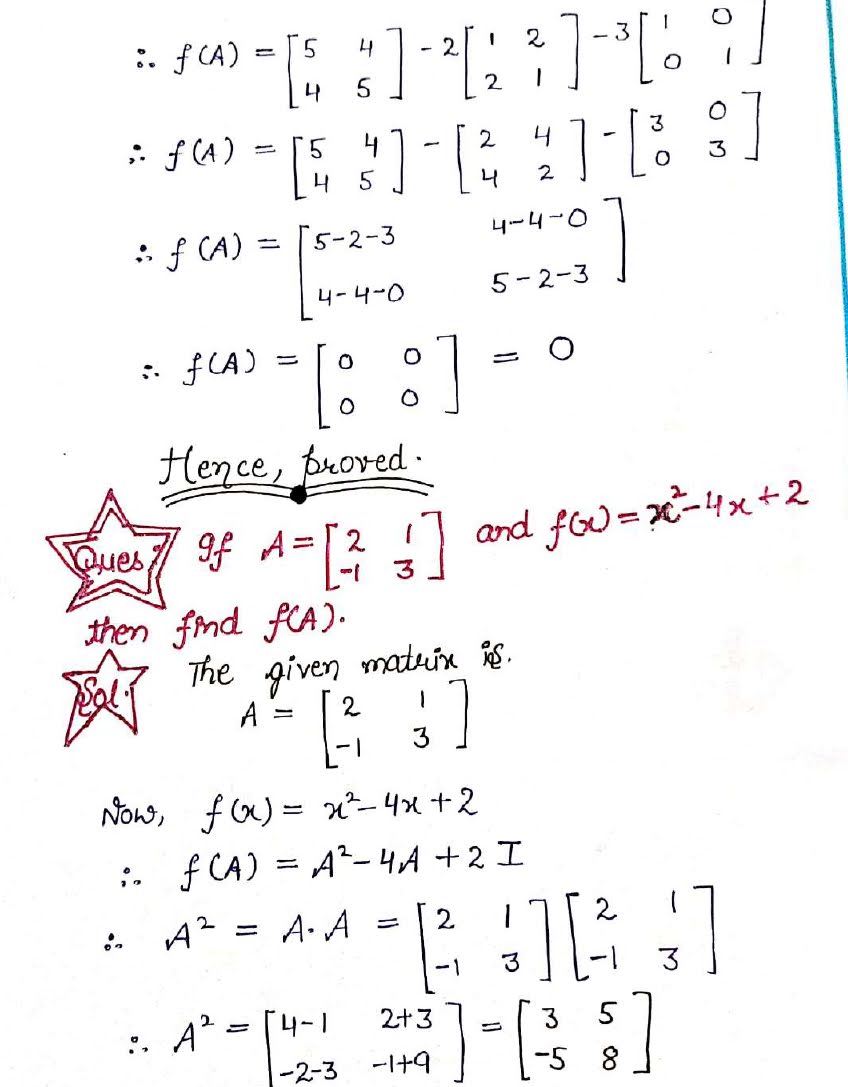 ∴ f(A) = [5 4; 4 5] - 2[1 2; 2 1] - 3[1 0; 0 1]
∴ f(A) = [5 4; 4 5] - [2 4; 4 2] - [3 0; 0 3]
∴ f(A) = [5-2-3 4-4-0; 4-4-0 5-2-3]
∴ f(A) = [0 0; 0 0] = 0
Hence, proved.
Ques: If A = [2 1; -1 3] and f(x) = x² - 4x + 2
then find f(A).
Sol. The given matrix is.
A = [2 1; -1 3]
Now, f(x) = x² - 4x + 2
∴ f(A) = A² - 4A + 2I
∴ A² = A·A = [2 1; -1 3] [2 1; -1 3]
∴ A² = [4-1 2+3; -2-3 -1+9] = [3 5; -5 8]